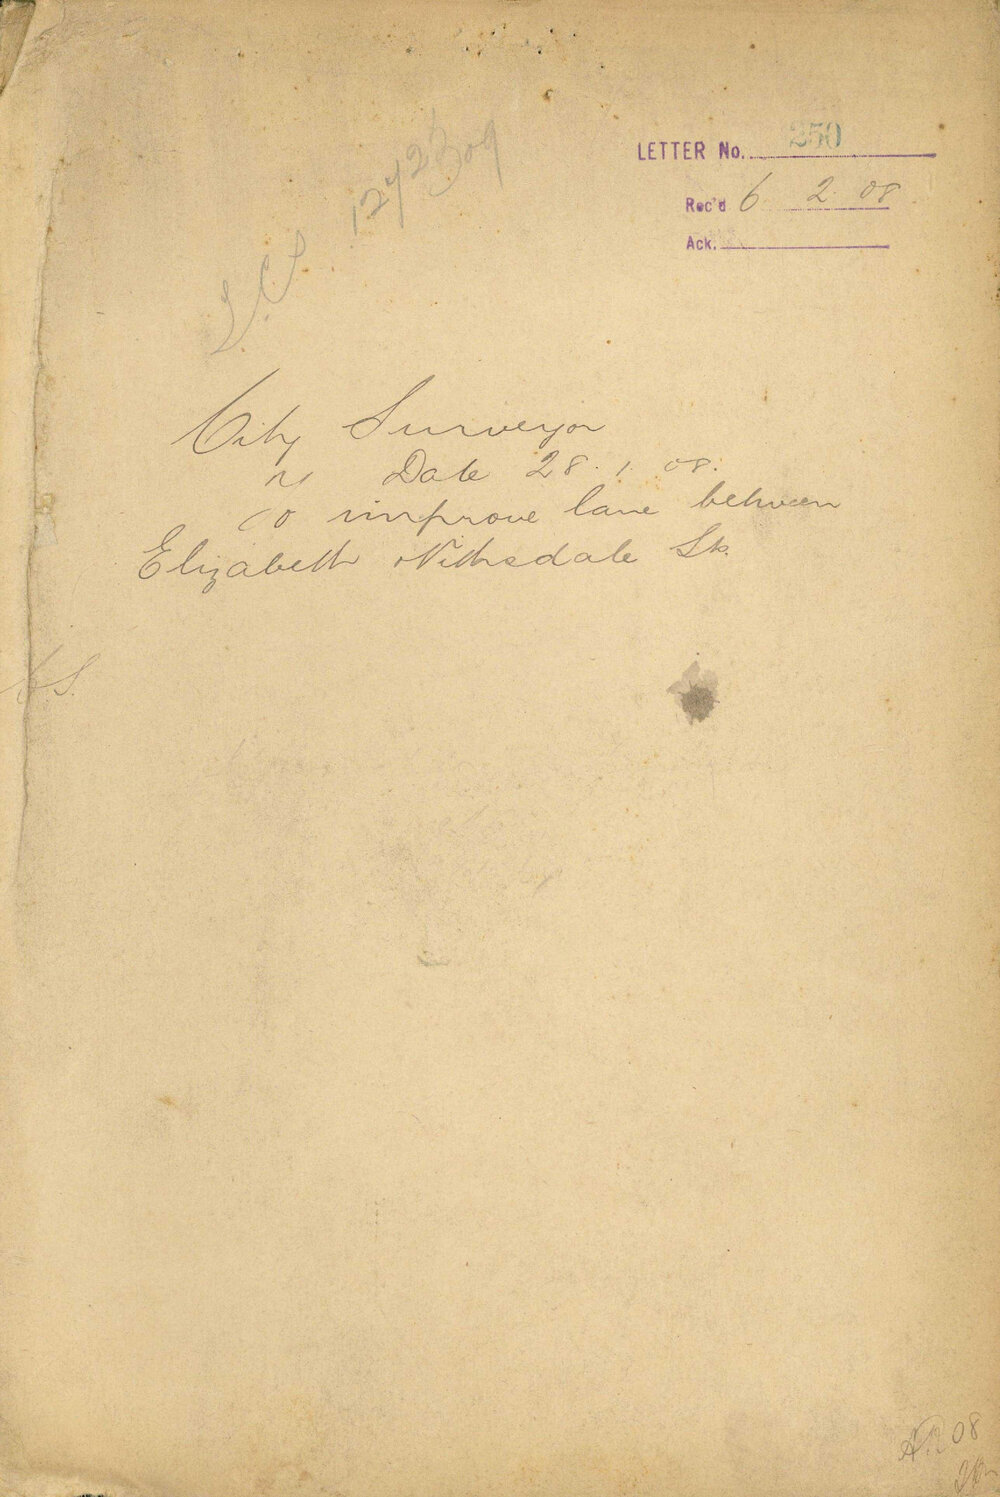 LETTER No. 250
Rec'd 6 2 08
Ack.
City Surveyor
Date 28.1.08.
to improve lane between
Elizabeth Nithsdale Sts.
08